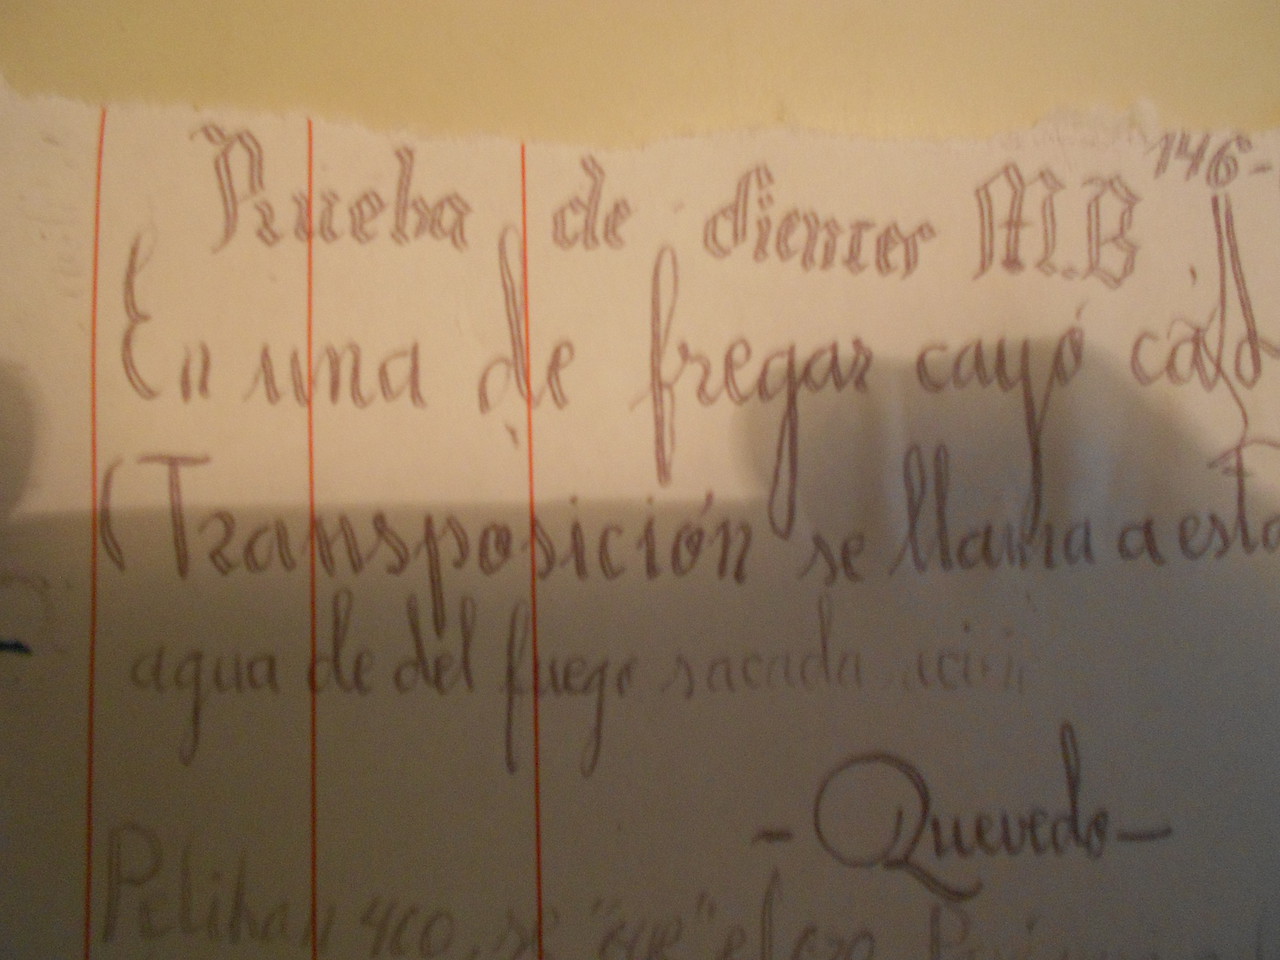 Prueba de dientes M.B 146-
En una de fregar cayó cald
(Transposición se llama a esta
agua de del fuego sacada
- Quevedo -
Pelikan 460, se "oye" el